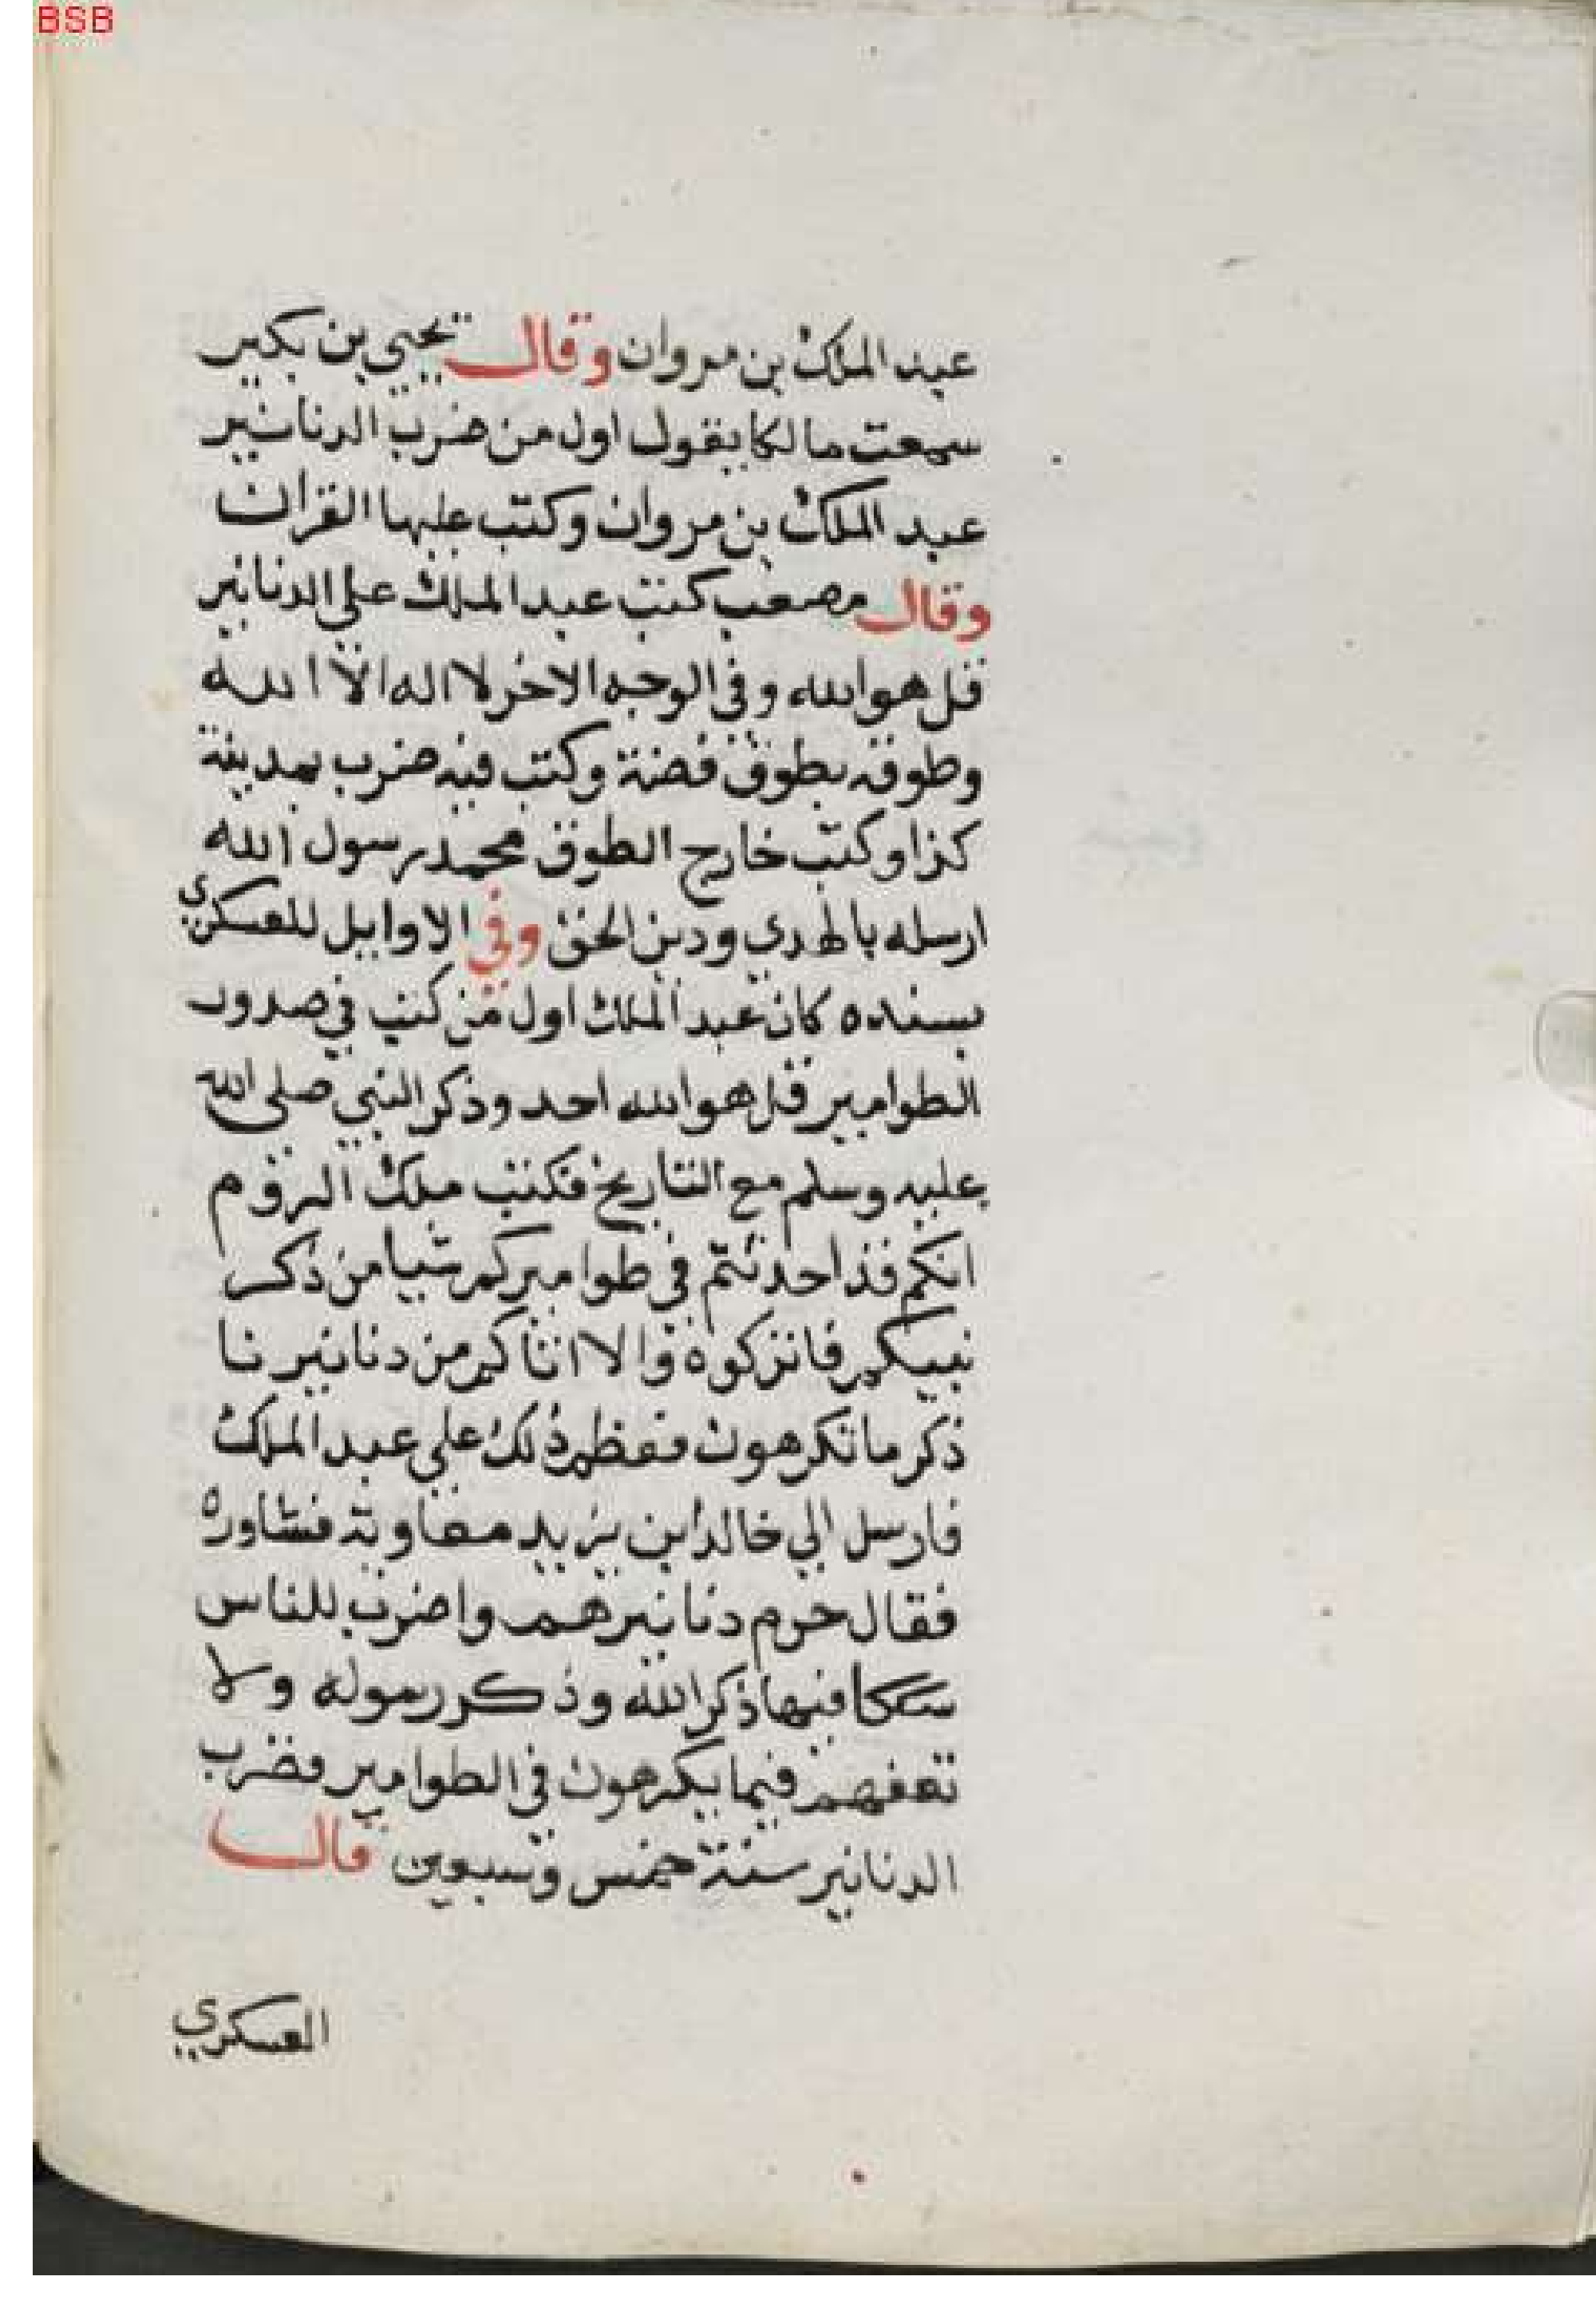 BSB
عبد الملك بن مروان وقال يحيي بن بكير
سمعت مالكا يقول اول من ضرب الدنانير
عبد الملك بن مروان وكتب عليها القران
وقال مصعب كتب عبد الملك علي الدنانير
قل هو الله وفي الوجه الاخر لا اله الا الله
وطوقه بطوق فضة وكتب فيه ضرب بمدينة
كذا وكتب خارج الطوق محمد رسول الله
ارسله بالهدي ودين الحق وفي الاوايل للعسكري
بسنده كان عبد الملك اول من كتب في صدور
الطوامير قل هو الله احد وذكر النبي صلي الله
عليه وسلم مع التاريخ فكتب ملك الروم
انكم قد احدثتم في طواميركم شيا من ذكر
نبيكم فاتركوه والا اتاكم من دنانيرنا
ذكر ما تكرهون فعظم ذلك علي عبد الملك
فارسل الي خالد ابن يزيد معاوية فشاوره
فقال حرم دنانيرهم واضرب للناس
سككا فيها ذكر الله وذكر رسوله ولا
تعفهم فيما يكرهون في الطوامير فضرب
الدنانير سنة خمس وسبعين قال
العسكري